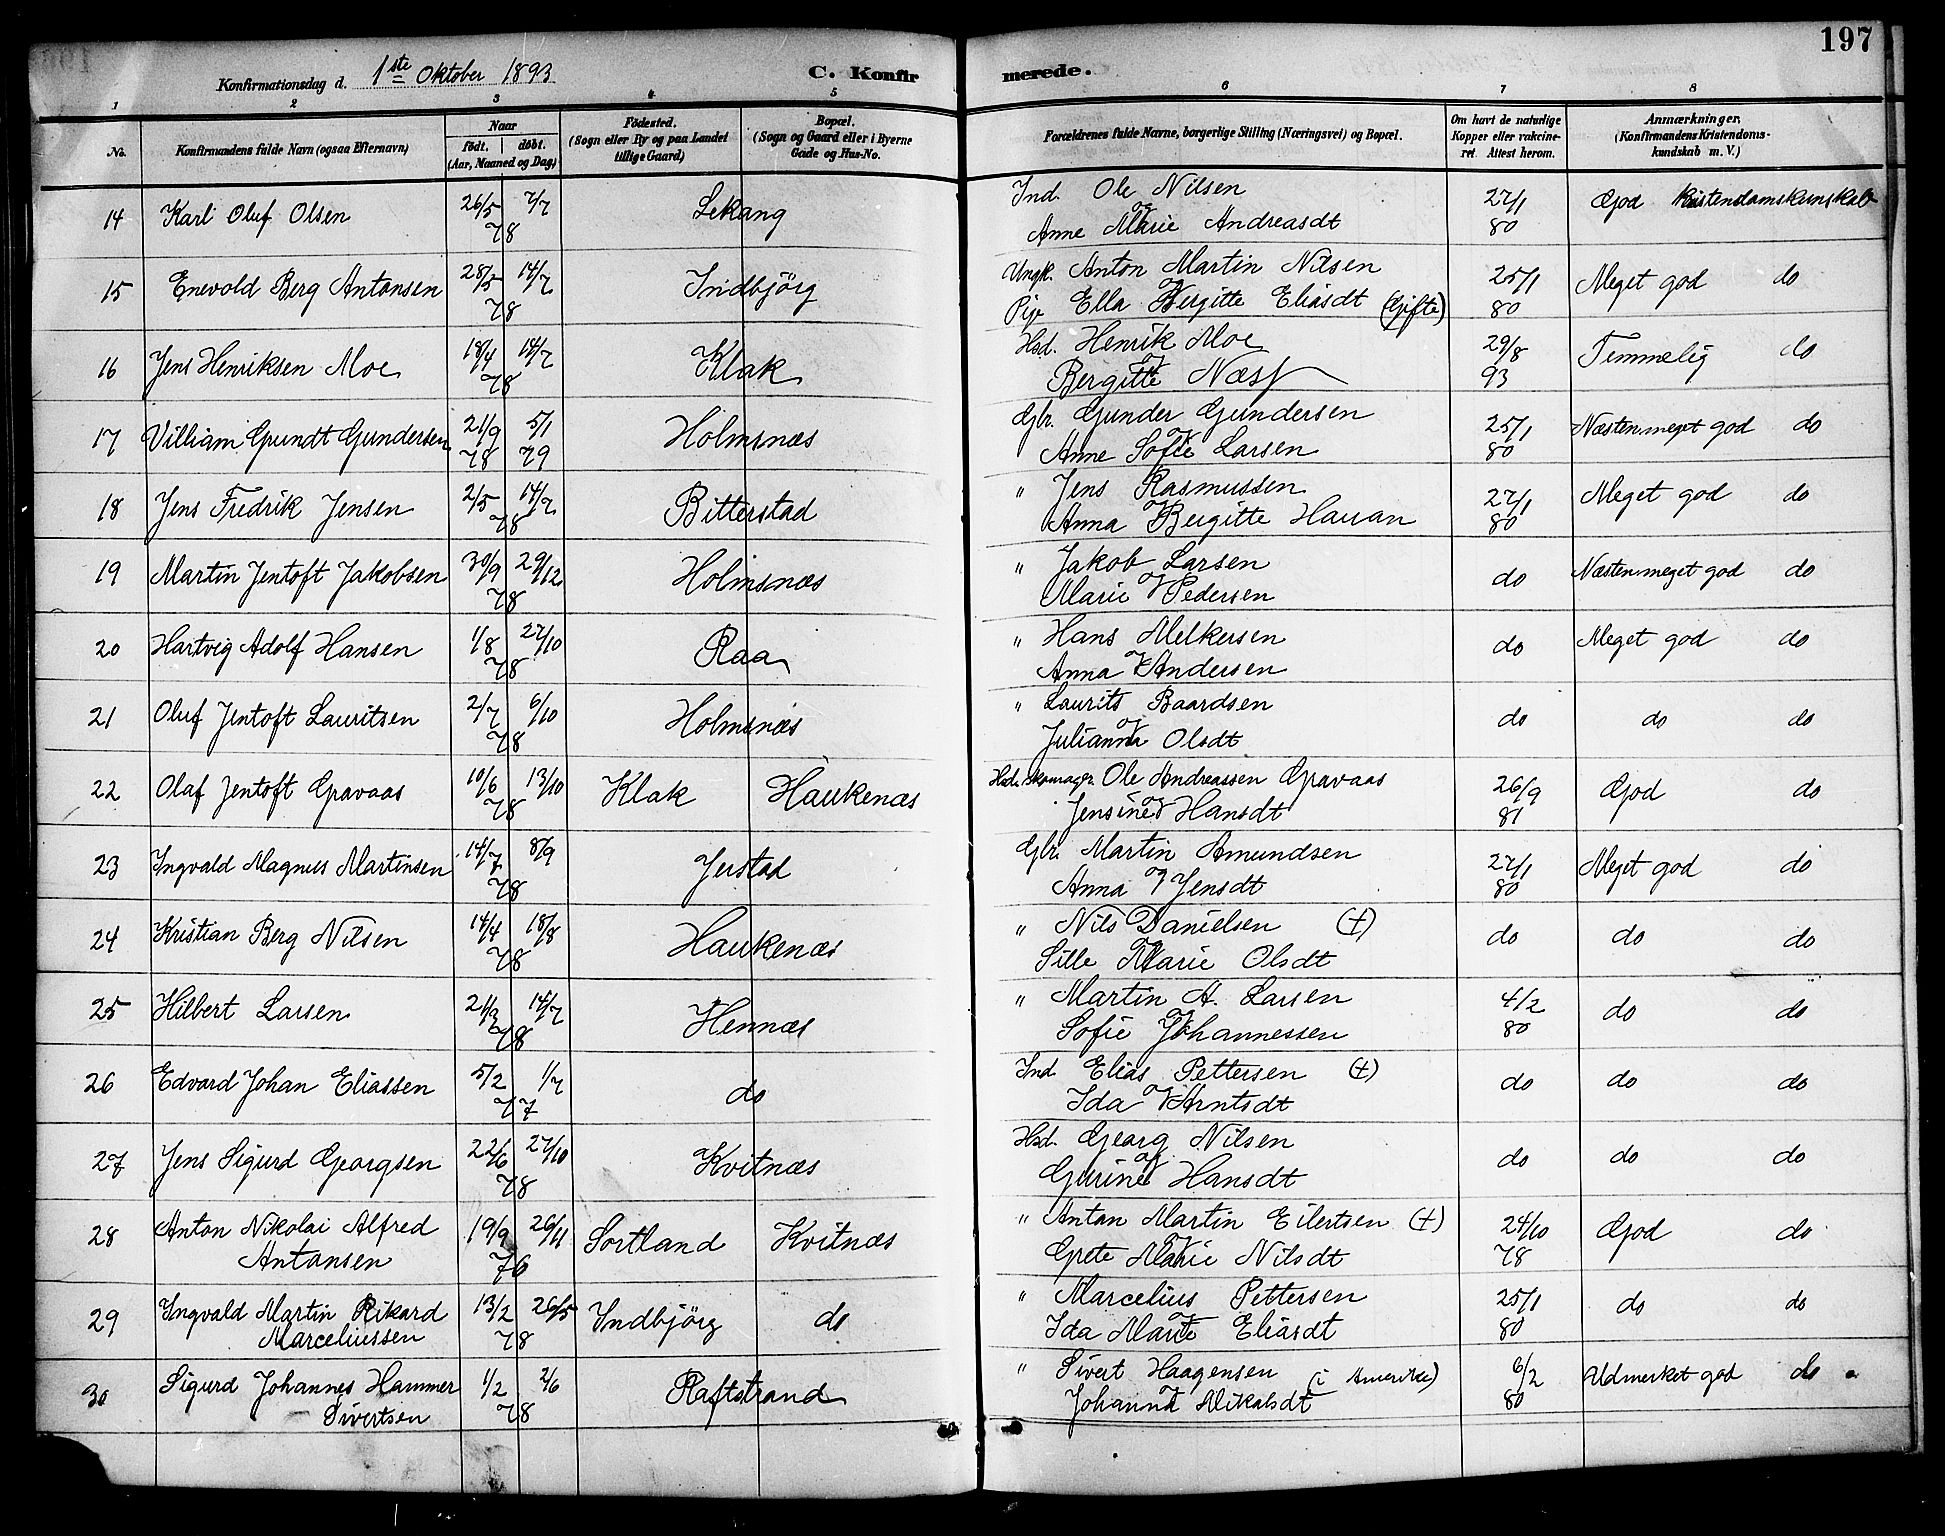 197
Konfirmationsdag d. 1ste Oktober 1893 C. Konfir merede.
1 2 3 4 5 6 7 8
No. Konfirmandens fulde Navn (ogsaa Efternavn) Naar født. døbt. (Aar, Maaned og Dag) Födested. (Sogn eller By og paa Landet tillige Gaard) Bopæl. (Sogn og Gaard eller i Byerne Gade og Hus-No. Forældrenes fulde Navne, borgerlige Stilling (Næringsvei) og Bopæl. Om havt de naturlige Kopper eller vakcineret. Attest herom. Anmærkninger, (Konfirmandens Kristendomskundskab m. V.)
14 Karl Oluf Olsen 26/5 7/7 78 Lekang Ind. Ole Nilsen og Anne Marie Andreasdt 27/1 80 God Kristendomskunskab
15 Enevold Berg Antonsen 28/5 14/7 78 Indbjörg Ungk. Anton Martin Nilsen og Pige Ella Bergitte Eliasdt (Gifte) 25/1 80 Meget god do
16 Jens Henriksen Moe 18/4 14/7 78 Klak Hsd. Henrik Moe og Bergitte Næss 29/8 93 Temmelig do
17 Villiam Gundt Gundersen 21/9 78 5/1 79 Holmsnæs Gbr. Gunder Gundersen og Anne Sofie Larsen 25/1 80 Næsten meget god do
18 Jens Fredrik Jensen 2/5 14/7 78 Bitterstad " Jens Rasmussen og Anna Bergitte Hauan 27/1 80 Meget god do
19 Martin Jentoft Jakobsen 30/9 29/12 78 Holmsnæs " Jakob Larsen og Marie Pedersen do Næsten meget god do
20 Hartvig Adolf Hansen 1/8 27/10 78 Raa " Hans Melkersen og Anna Andersen do Meget god do
21 Oluf Jentoft Lauritsen 2/7 6/10 78 Holmsnæs " Laurits Baardsen og Julianna Olsdt do do do
22 Olaf Jentoft Gravaas 10/6 13/10 78 Klak Haukenæs Hsd. skomager Ole Andreassen Gravaas og Jensine Hansdt 26/9 81 God do
23 Ingvald Magnus Martinsen 14/7 8/9 78 Jerstad Gbr. Martin Amundsen og Anna Jensdt 27/1 80 Meget god do
24 Kristian Berg Nilsen 14/4 18/8 78 Haukenæs " Nils Danielsen (+) og Sille Marie Olsdt do do do
25 Hilbert Larsen 21/3 14/7 78 Hennæs " Martin A. Larsen og Sofie Johannessen 4/2 80 do do
26 Edvard Johan Eliassen 5/2 1/7 77 do Ind Elias Pettersen (+) og Ida Arntsdt do do do
27 Jens Sigurd Georgsen 22/6 27/10 78 Kvitnæs Hsd. Georg Nilsen og Gurine Hansdt do do do
28 Anton Nikolai Alfred Antonsen 19/9 26/11 76 Sortland Kvitnæs " Anton Martin Eilertsen (+) og Grete Marie Nilsdt 24/10 78 God do
29 Ingvald Martin Rikard Marceliussen 13/2 26/5 78 Indbjörg do " Marcelius Pettersen og Ida Marie Eliasdt 25/1 80 do do
30 Sigurd Johannes Hammer Sivertsen 1/2 2/6 78 Raftstrand " Sivert Haagensen (i Amerika) og Johanna Nikolsdt 6/2 80 Udmerket god do